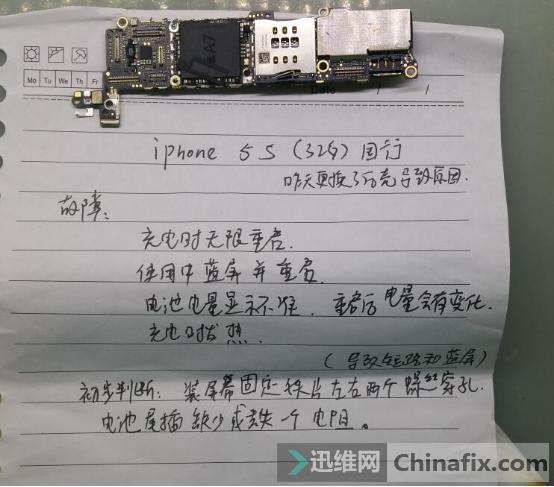 A7
Mo Tu We Th Fr
Date / /
iphone 5S (32G) 国行
昨天更换了后壳导致原因.
故障:
充电时无限重启.
使用中蓝屏并重启.
电池电量显示不准. 重启后电量会有变化.
充电时发热.
(导致短路和蓝屏)
初步判断: 装屏幕固定铁片左右两个螺丝穿孔.
电池尾插缺少或丢失一个电阻。
迅维网 Chinafix.com